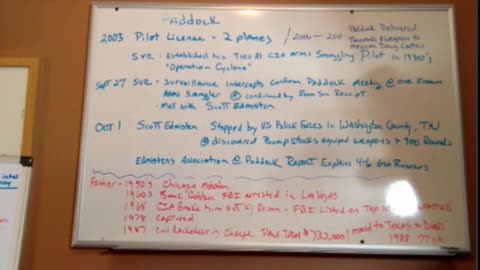 Paddock
2003 Pilot License - 2 planes / 2006 - 2011 Paddock Delivered
Thousands Weapons to
Mexican Drug Cartel
SVR - Established his Ties As CIA Arms Smuggling Pilot in 1980's
"Operation Cyclone"
Sept 27 SVR - Surveillance intercepts confirm Paddock Meeting @ one Known
Arms Smuggler @ confirmed by Room Svc Receipt
- Met with Scott Edmisten
Oct 1 Scott Edmisten Stopped by US Police Forces in Washington County, TN
@ discovered Bumpstocks equiped weapons & 900 Rounds
Edmistens Association @ Paddock Report Explains 4-6 Gun Runners
Father - 1950's Chicago Mobster
1960's Bank Robber FBI arrested in Las Vegas
1968 CIA Broke him out of Prison - FBI Listed on Top 10 WANTED
1978 Captured
1987 Civil Racketeering Charge Paid Total $732,000 / moved to Texas & Died
1988 77 y/o